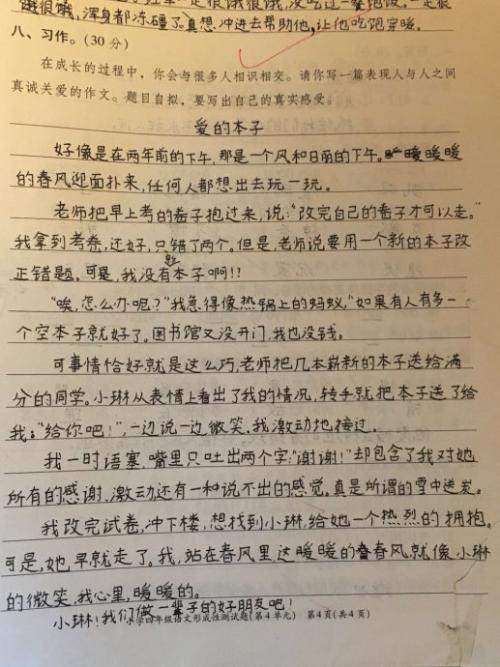 饿很饿,浑身都冻僵了。真想冲进去帮助他,让他吃饱穿暖。
八、习作。(30分)
在成长的过程中,你会与很多人相识相交。请你写一篇表现人与人之间
真诚关爱的作文。题目自拟,要写出自己的真实感受。
爱的本子
好像是在两年前的下午,那是一个风和日丽的下午。暖暖暖
的春风迎面扑来,任何人都想出去玩一玩。
老师把早上考的卷子抱过来,说:“改完自己的卷子才可以走。”
我拿到考卷,还好,只错了两个题。但是,老师说要用一个新的本子改
正错题,可是,我没有本子啊!!
“唉,怎么办呢?”我急得像热锅上的蚂蚁,“如果有人有多一
个空本子就好了。图书馆又没开门,我也没钱。
可事情恰好就是这么巧,老师把几本崭新的本子送给满
分的同学。小琳从表情上看出了我的情况,转手就把本子送了给
我:“给你吧!”,一边说一边微笑,我激动地接过。
我一时语塞,嘴里只吐出两个字:“谢谢!”却包含了我对她
所有的感谢,激动还有一种说不出的感觉。真是所谓的雪中送炭。
我改完试卷,冲下楼,想找到小琳,给她一个热烈的拥抱。
可是,她早就走了。我,站在春风里,这暖暖的春风,就像小琳
的微笑,我心里,暖暖的。
小琳!我们做一辈子的好朋友吧!
小学四年级语文形成性测试题(第4单元) 第4页(共4页)